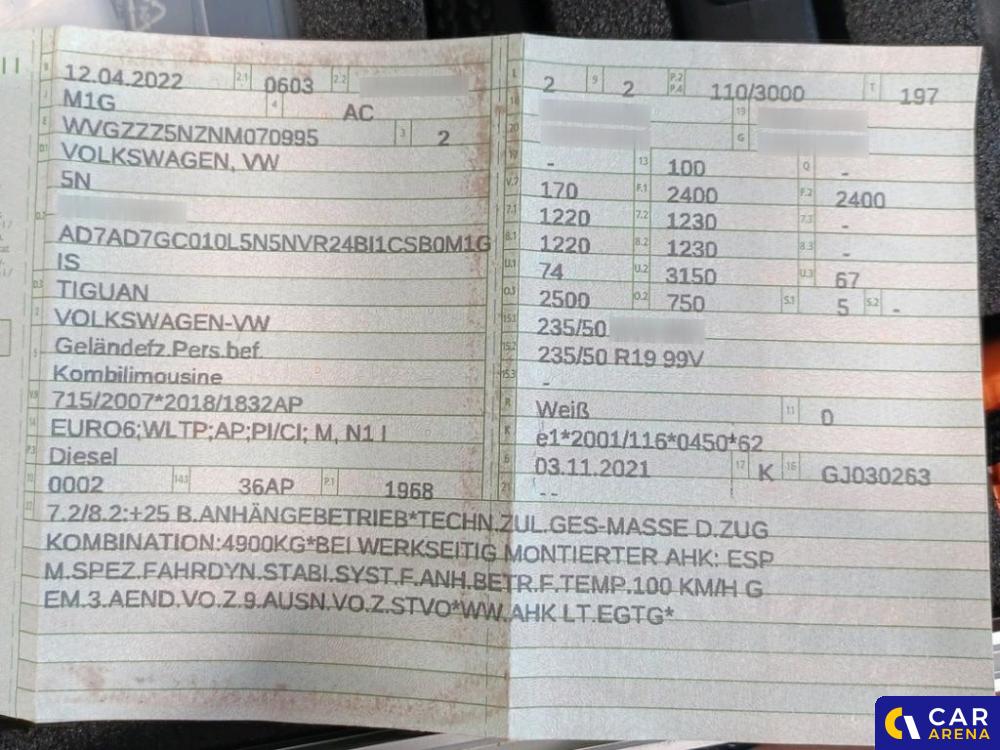 B 12.04.2022 2.1 0603 2.2 L 2 9 2 P.2 P.4 110/3000 T 197
J M1G 4 AC 18 19
E WVGZZZ5NZNM070995 3 2 20 G
D.1 VOLKSWAGEN, VW 12 - 13 100 Q -
5N V.7 170 F.1 2400 F.2 2400
D.2 7.1 1220 7.2 1230 7.3 -
AD7AD7GC010L5N5NVR24BI1CSB0M1G 8.1 1220 8.2 1230 8.3 -
IS U.1 74 U.2 3150 U.3 67
D.3 TIGUAN O.1 2500 O.2 750 S.1 5 S.2 -
2 VOLKSWAGEN-VW 15.1 235/50
5 Geländefz.Pers.bef. 15.2 235/50 R19 99V
Kombilimousine 15.3 -
V.9 715/2007*2018/1832AP R Weiß 11 0
14 EURO6;WLTP;AP;PI/CI; M, N1 I K e1*2001/116*0450*62
P.3 Diesel 6 03.11.2021 17 K 16 GJ030263
10 0002 14.1 36AP P.1 1968 21 --
22 7.2/8.2:+25 B.ANHÄNGEBETRIEB*TECHN.ZUL.GES-MASSE D.ZUG
KOMBINATION:4900KG*BEI WERKSEITIG MONTIERTER AHK: ESP
M.SPEZ.FAHRDYN.STABI.SYST.F.ANH.BETR.F.TEMP.100 KM/H G
EM.3.AEND.VO.Z.9.AUSN.VO.Z.STVO*WW.AHK LT.EGTG*
CAR
ARENA